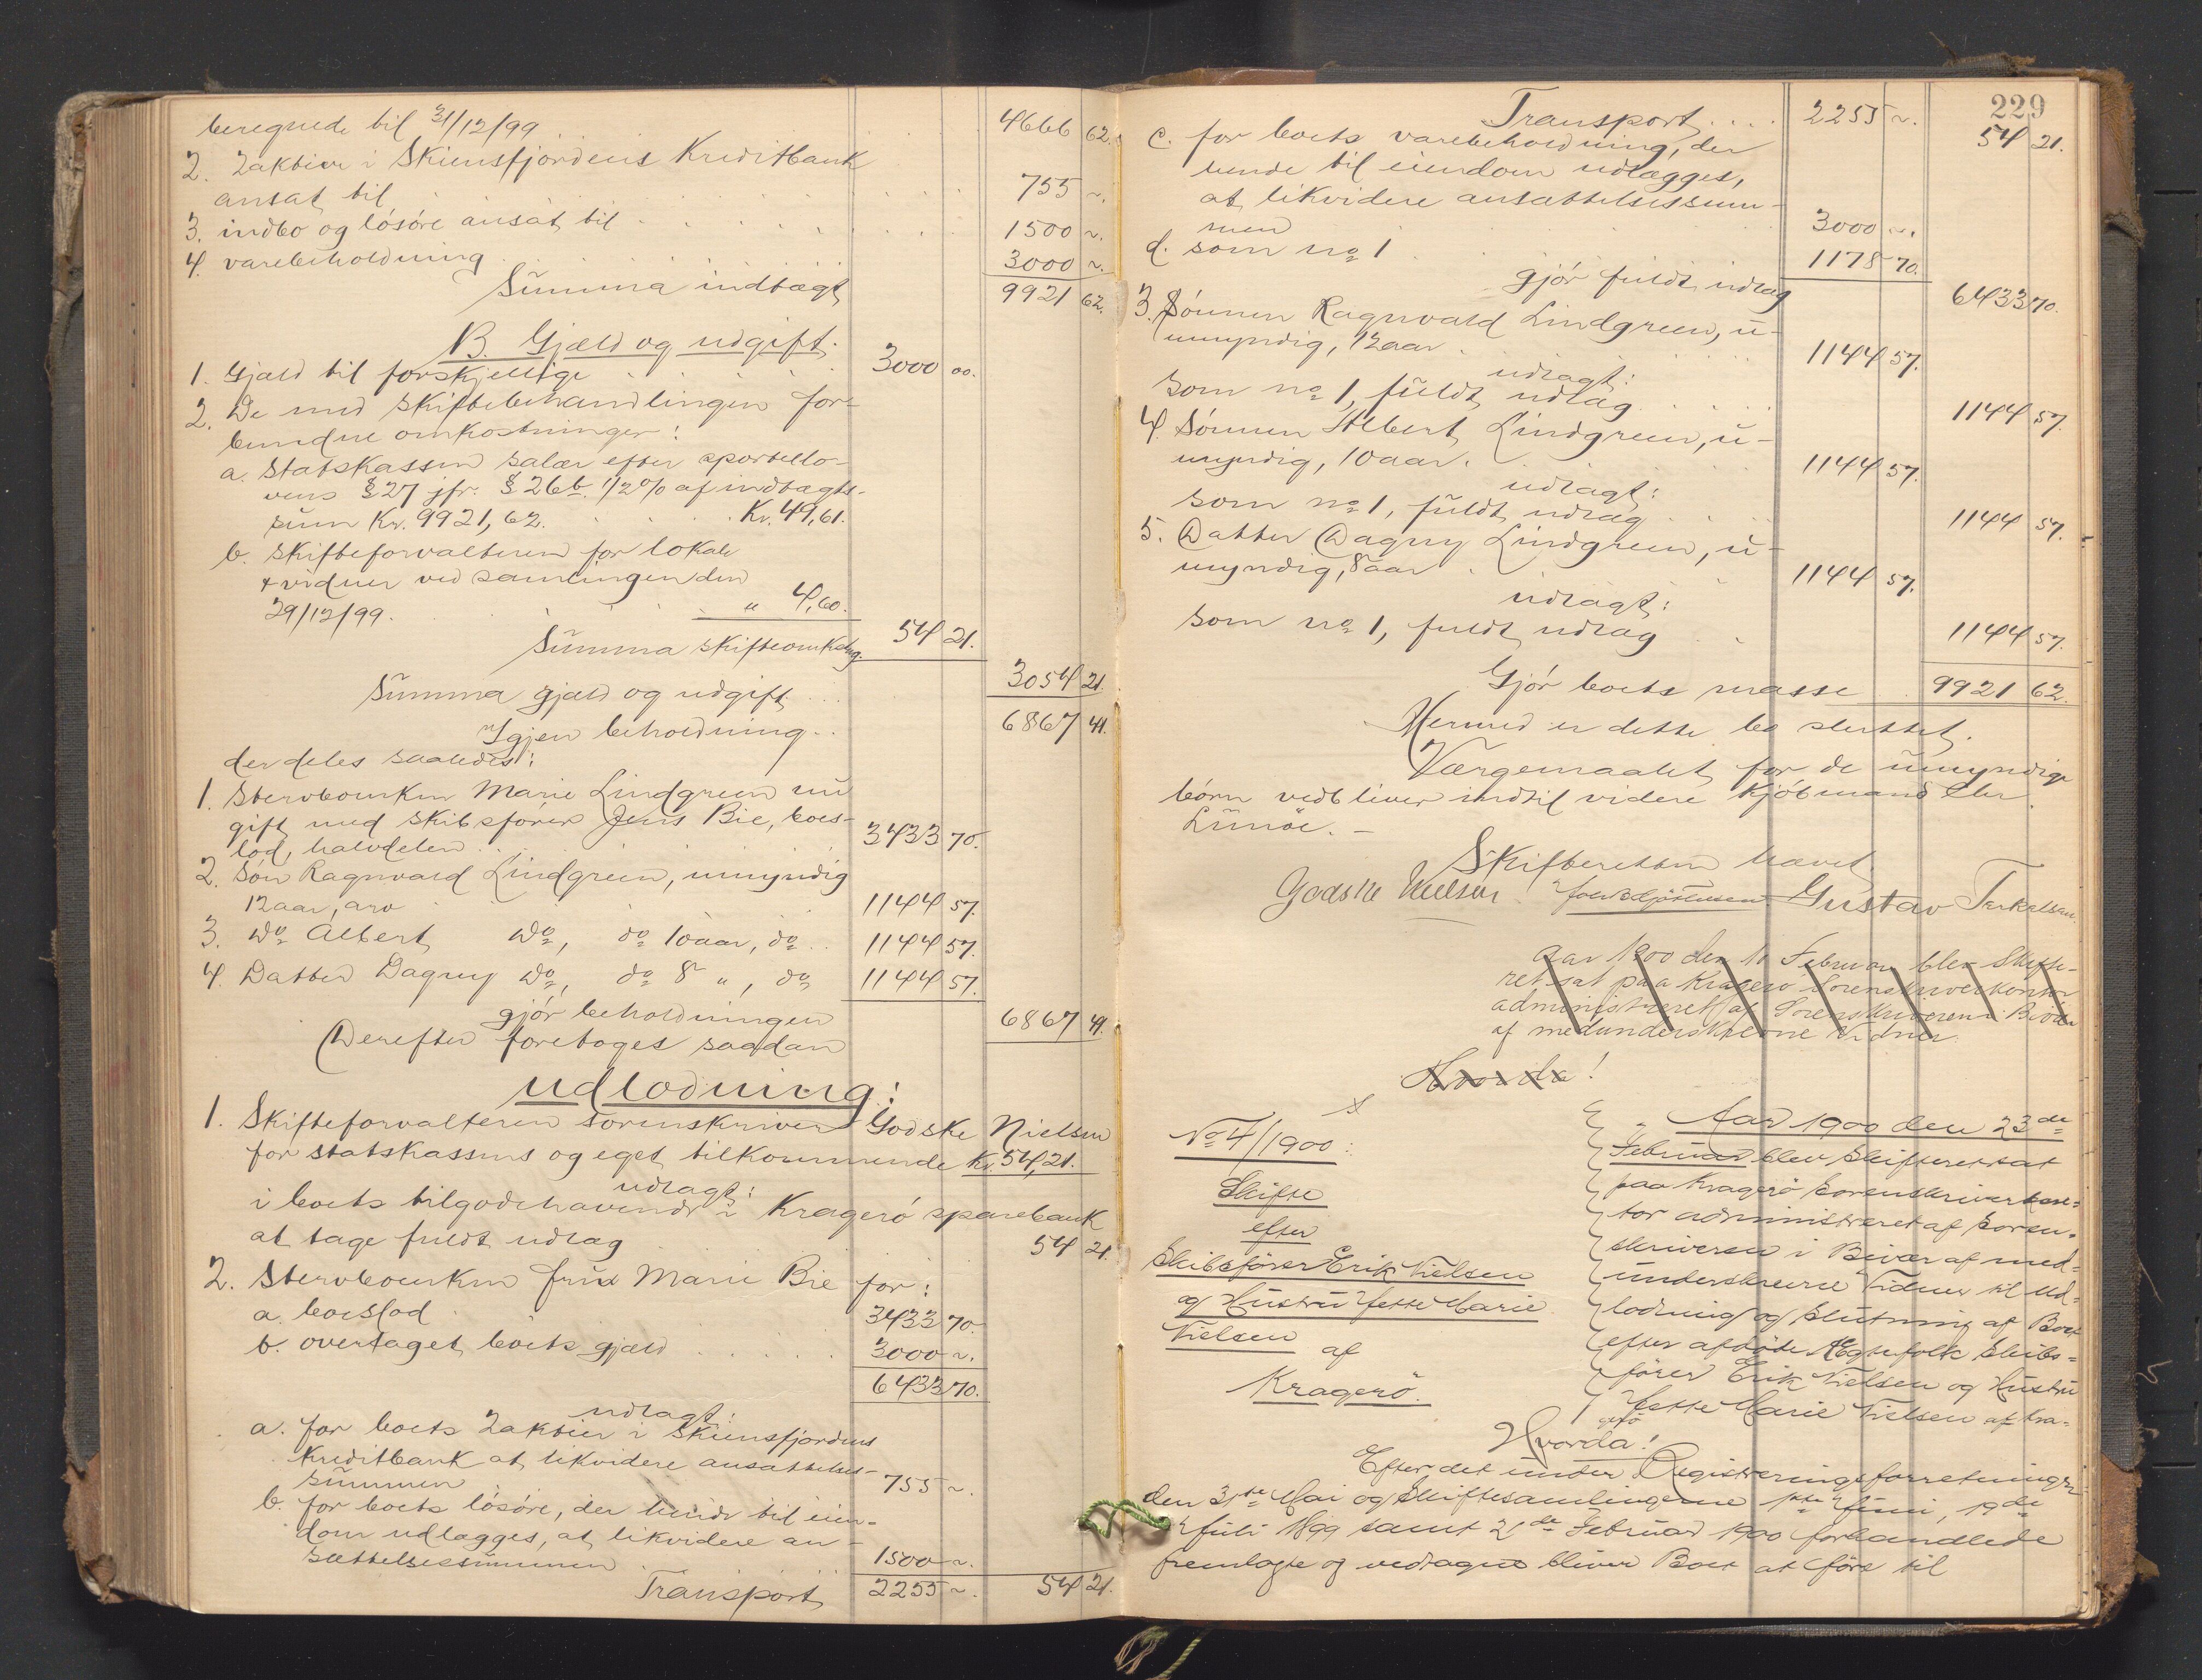 beregnede til 31/12/99 . . 4666 62.
2. 2 aktier i Skiensfjordens Kreditbank
ansat til . . . . 755 ~.
3. indbo og løsøre ansat til . . . . 1500 ~.
4. varebeholdning . . . . 3000 ~.
Summa indtægt 9921 62.
B. Gjæld og udgift.
1. Gjæld til forskjellige . . . . 3000 00.
2. De med skiftebehandlingen for-
bundne omkostninger:
a. Statskassen salær efter sportello-
vens § 27 jfr. § 26 b. 1/2 % af indtægts-
sum Kr. 9921,62. . . . Kr. 49,61.
b. Skifteforvalteren for lokale
+ vidner ved samlingen den
29/12/99. . . . " 4,60.
Summa skifteomkstng. 54 21.
Summa gjæld og udgift . . . 3054 21.
Igjen beholdning . . 6867 41.
der deles saaledes:
1. Stervboenken Marie Lindgreen nu
gift med Skibsfører Jens Bie, boes-
lod, halvdelen . . . 3433 70.
2. Søn Ragnvald Lindgreen, umyndig
12 aar, arv . . . 1144 57.
3. do Albert do, do 10 aar, do . . 1144 57.
4. Datter Dagny do, do 8 " , do 1144 57.
gjør beholdningen 6867 41.
Derefter foretoges saadan
udlodning:
1. Skifteforvalteren sorenskriver Godske Nielsen
for statskassens og eget tilkommende Kr. 54,21.
udlagt:
i boets tilgodehavende i Kragerø sparebank
at tage fuldt udlag . . . 54 21.
2. Stervboenken frue Marie Bie for:
a. boeslod . . 3433 70.
b. overtaget boets gjæld . . . . . 3000 ~.
6433 70.
udlagt:
a. for boets 2 aktier i Skiensfjordens
Kreditbank at likvidere ansættelses-
summen . . . 755 ~.
b. for boets løsøre, der hende til eien-
dom udlægges, at likvidere an-
sættelsessummen . . 1500 ~.
Transport 2255 ~. 54 21.
229
Transport . . . . 2255 ~. 54 21.
c. for boets varebeholdning, der
hende til eiendom udlægges,
at likvidere ansættelsessum-
men . . . 3000 ~.
d. som no 1 . . . 1178 70.
gjør fuldt udlag 6433 70.
3. Sønnen Ragnvald Lindgreen, u-
umyndig, 12 aar . . . . 1144 57.
udlagt:
som no 1, fuldt udlag . . . . 1144 57.
4. Sønnen Albert Lindgreen, u-
myndig, 10 aar. . . . 1144 57.
udlagt:
som no 1, fuldt udlag . . . 1144 57.
5. Datter Dagny Lindgreen, u-
myndig, 8 aar . . . 1144 57.
udlagt:
som no 1, fuldt udlag . . 1144 57.
Gjør boets masse . . 9921 62.
Hermed er dette bo sluttet.
Værgemaalet for de umyndige
børn vedbliver indtil videre Kjøbmand
Lunøe. –
Skifteretten hævet
Godske Nielsen Gustav Terkelsen
Aar 1900 den Februar blev Skifte-
ret sat paa Kragerø Sorenskriverkontor
administreret af Sorenskriveren i Bivær
af medunderskrevne Vidner.
Hvorda!
No 4/1900:
Skifte
efter
Skibsfører Erik Nielsen
og Hustru Jette Marie
Nielsen
af
Kragerø.
Aar 1900 den 23de
Februar blev Skifteret sat
paa Kragerø Sorenskriverkon-
tor administreret af Soren-
skriveren i Bivær af med-
underskrevne Vidner til Ud-
lodning og Slutning af Boet
efter afdøde Ægtefolk Skibs-
fører Erik Nielsen og Hustru
Jette Marie Nielsen af Kra-
gerø
Hvorda!
Efter det under Registreringsforretningen
den 31te Mai og Skiftesamlingerne 1ste Juni, 19de
Juli 1899 samt 21de Februar 1900 forhandlede
fremlagte og vedtagne bliver Boet at føre til